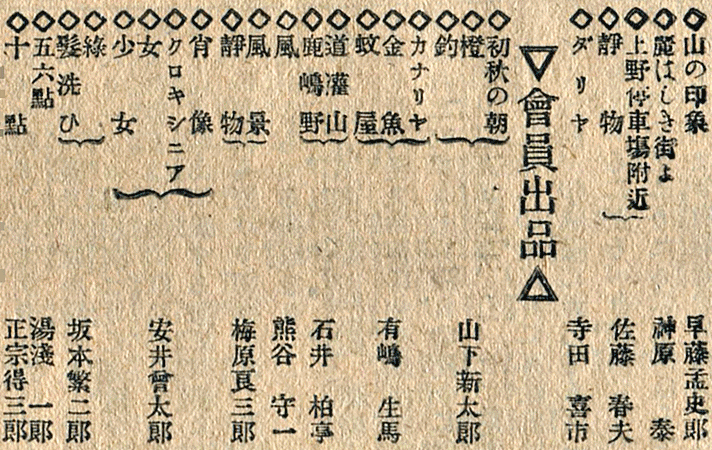 ◇山の印象 早藤孟史郎
◇麗はしき街よ 神原 泰
◇上野停車場附近
◇靜物 佐藤 春夫
◇ダリヤ 寺田 喜市
▽會員出品△
◇初秋の朝
◇橙 山下新太郎
◇釣
◇カナリヤ
◇金魚 有嶋 生馬
◇蚊屋
◇道灌山 石井 柏亭
◇鹿嶋野
◇風 熊谷 守一
◇風景
◇靜物 梅原良三郎
◇肖像
◇クロキシニア
◇女 安井曾太郎
◇少女
◇綠
◇髮洗ひ 坂本繁二郎
◇五六點 湯淺 一郎
◇十點 正宗得三郎